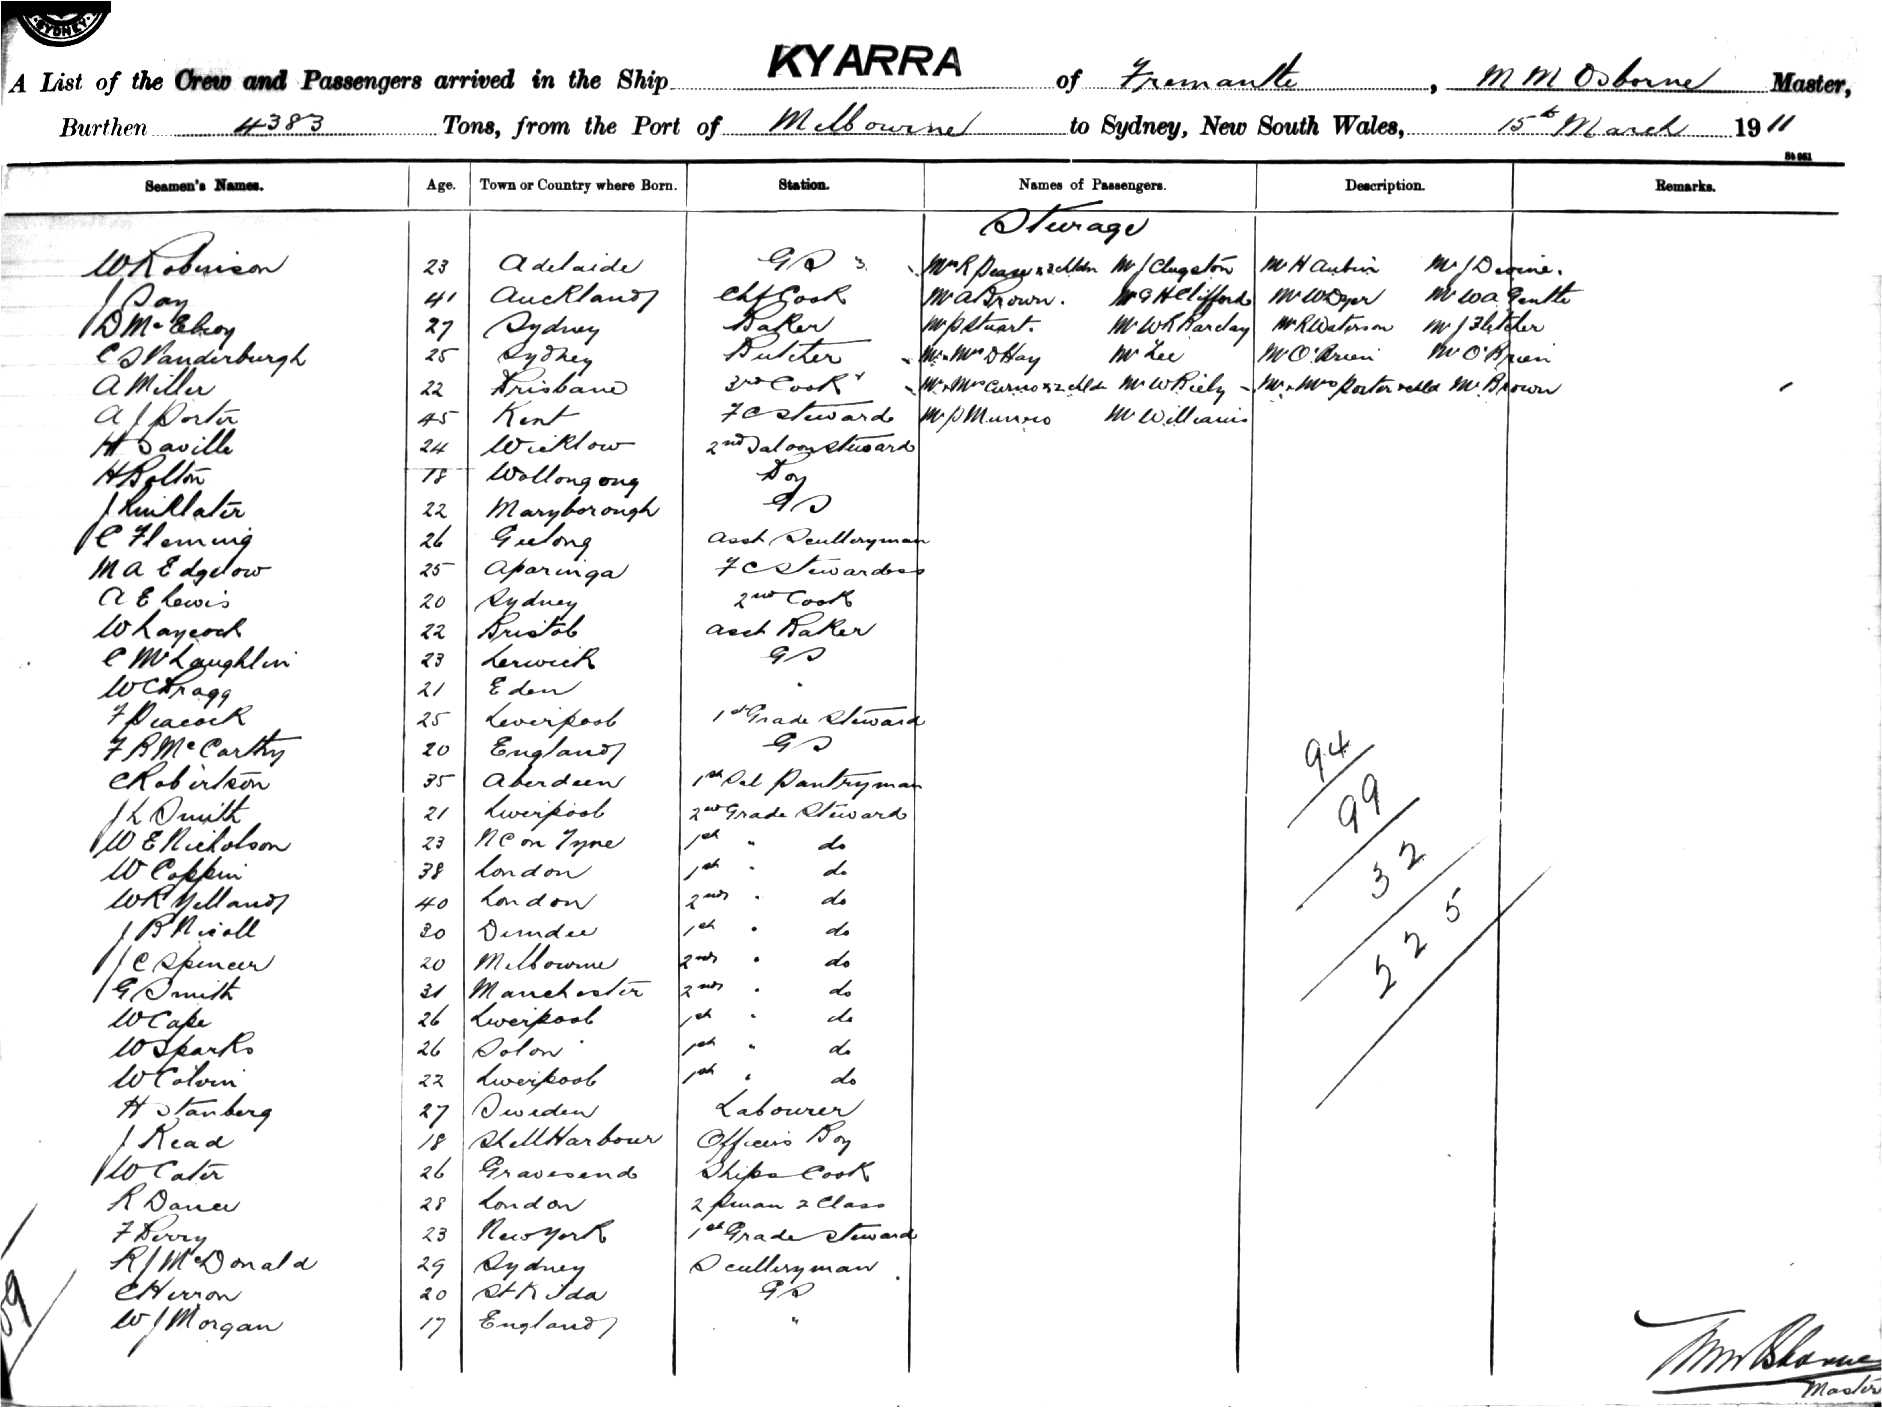 SYDNEY
KYARRA
A List of the Crew and Passengers arrived in the Ship KYARRA of Fremantle, M M Osborne Master,
Burthen 4383 Tons, from the Port of Melbourne to Sydney, New South Wales, 15th March 1911
Seamen's Names. Age. Town or Country where Born. Station. Names of Passengers. Description. Remarks.
Steerage
W Robinson 23 Adelaide G S Mrs R Pearse & 2 chldn Mr J Clugston Mr H Aubin Mr J Devine.
J Day 41 Auckland Chf Cook Mr A Brown. Mr G H Clifford Mr W Dyer Mr W A Gentle
D McElroy 27 Sydney Baker Mr P Stuart. Mr W R Barclay Mr R Waterson Mr J Fletcher
C S Vanderburgh 25 Sydney Butcher Mr & Mrs D Hay Mr Lee Mr O'Brien Mr O'Brien
A Miller 22 Brisbane 3rd Cook Mr & Mrs & 2 chldn Mr W Riely Mr & Mrs Porter & chld Mr Brown
A J Porter 45 Kent F C Steward Mr P Munro Mr Williams
H Saville 24 Wicklow 2nd Saloon Steward
H Bolton 18 Wollongong Boy
J 22 Maryborough G S
C Fleming 26 Geelong Asst Sculleryman
M A Edgelow 25 Aparinga F C Stewardess
A E Lewis 20 Sydney 2nd Cook
W Laycock 22 Bristol Asst Baker
C McLaughlin 23 Lerwick G S
W C Bragg 21 Eden "
F Peacock 25 Liverpool 1st Grade Steward
F B McCarthy 20 England G S
C Robertson 35 Aberdeen 1st Sal Pantryman
J L Smith 21 Liverpool 2nd Grade Steward
W E Nicholson 23 N C on Tyne 1st " do
W Coppin 38 London 1st " do
W R Yelland 40 London 2nd " do
J B Nicoll 30 Dundee 1st " do
J C Spencer 20 Melbourne 2nd " do
G Smith 31 Manchester 2nd " do
W Cape 26 Liverpool 1st " do
W Sparks 26 Solon 1st " do
W Colvin 22 Liverpool 1st " do
H Stanberg 27 Sweden Labourer
J Read 18 Shell Harbour Officers Boy
W Cater 26 Gravesend Ships Cook
R Dance 28 London 2 pman 2 Class
F Berry 23 New York 1st Grade Steward
R J McDonald 29 Sydney Sculleryman
C Herron 20 St Kilda G S
W J Morgan 17 England "
94
99
32
225
M M Osborne
Master